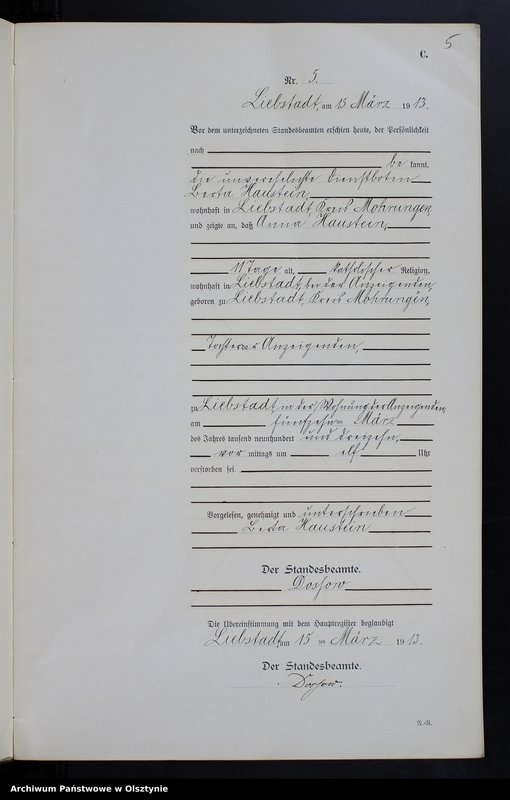 5
C.
Nr. 5.
Liebstadt, am 15 März 1913.
Vor dem unterzeichneten Standesbeamten erschien heute, der Persönlichkeit
nach
be kannt,
die unverehelichte Dienstbotin
Berta Haustein,
wohnhaft in Liebstadt, Kreis Mohrungen,
und zeigte an, daß Anna Haustein,
11 Tage alt, katholischer Religion,
wohnhaft in Liebstadt, bei der Anzeigenden,
geboren zu Liebstadt, Kreis Mohrungen,
Tochter der Anzeigenden,
zu Liebstadt in der Wohnung der Anzeigenden,
am fünfzehnten März
des Jahres tausend neunhundert und dreizehn,
vor mittags um elf Uhr
verstorben sei.
Vorgelesen, genehmigt und unterschrieben
Berta Haustein
Der Standesbeamte.
Dossow
Die Übereinstimmung mit dem Hauptregister beglaubigt
Liebstadt, am 15 ten März 1913.
Der Standesbeamte.
Dossow.
R.-R.
Archiwum Państwowe w Olsztynie